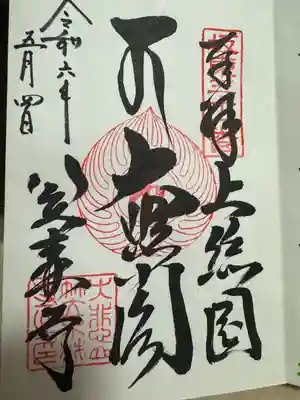 奉拝 上総国
大悲閣
笠森寺
令和六年
五月四日
大悲山
笠森
寺印